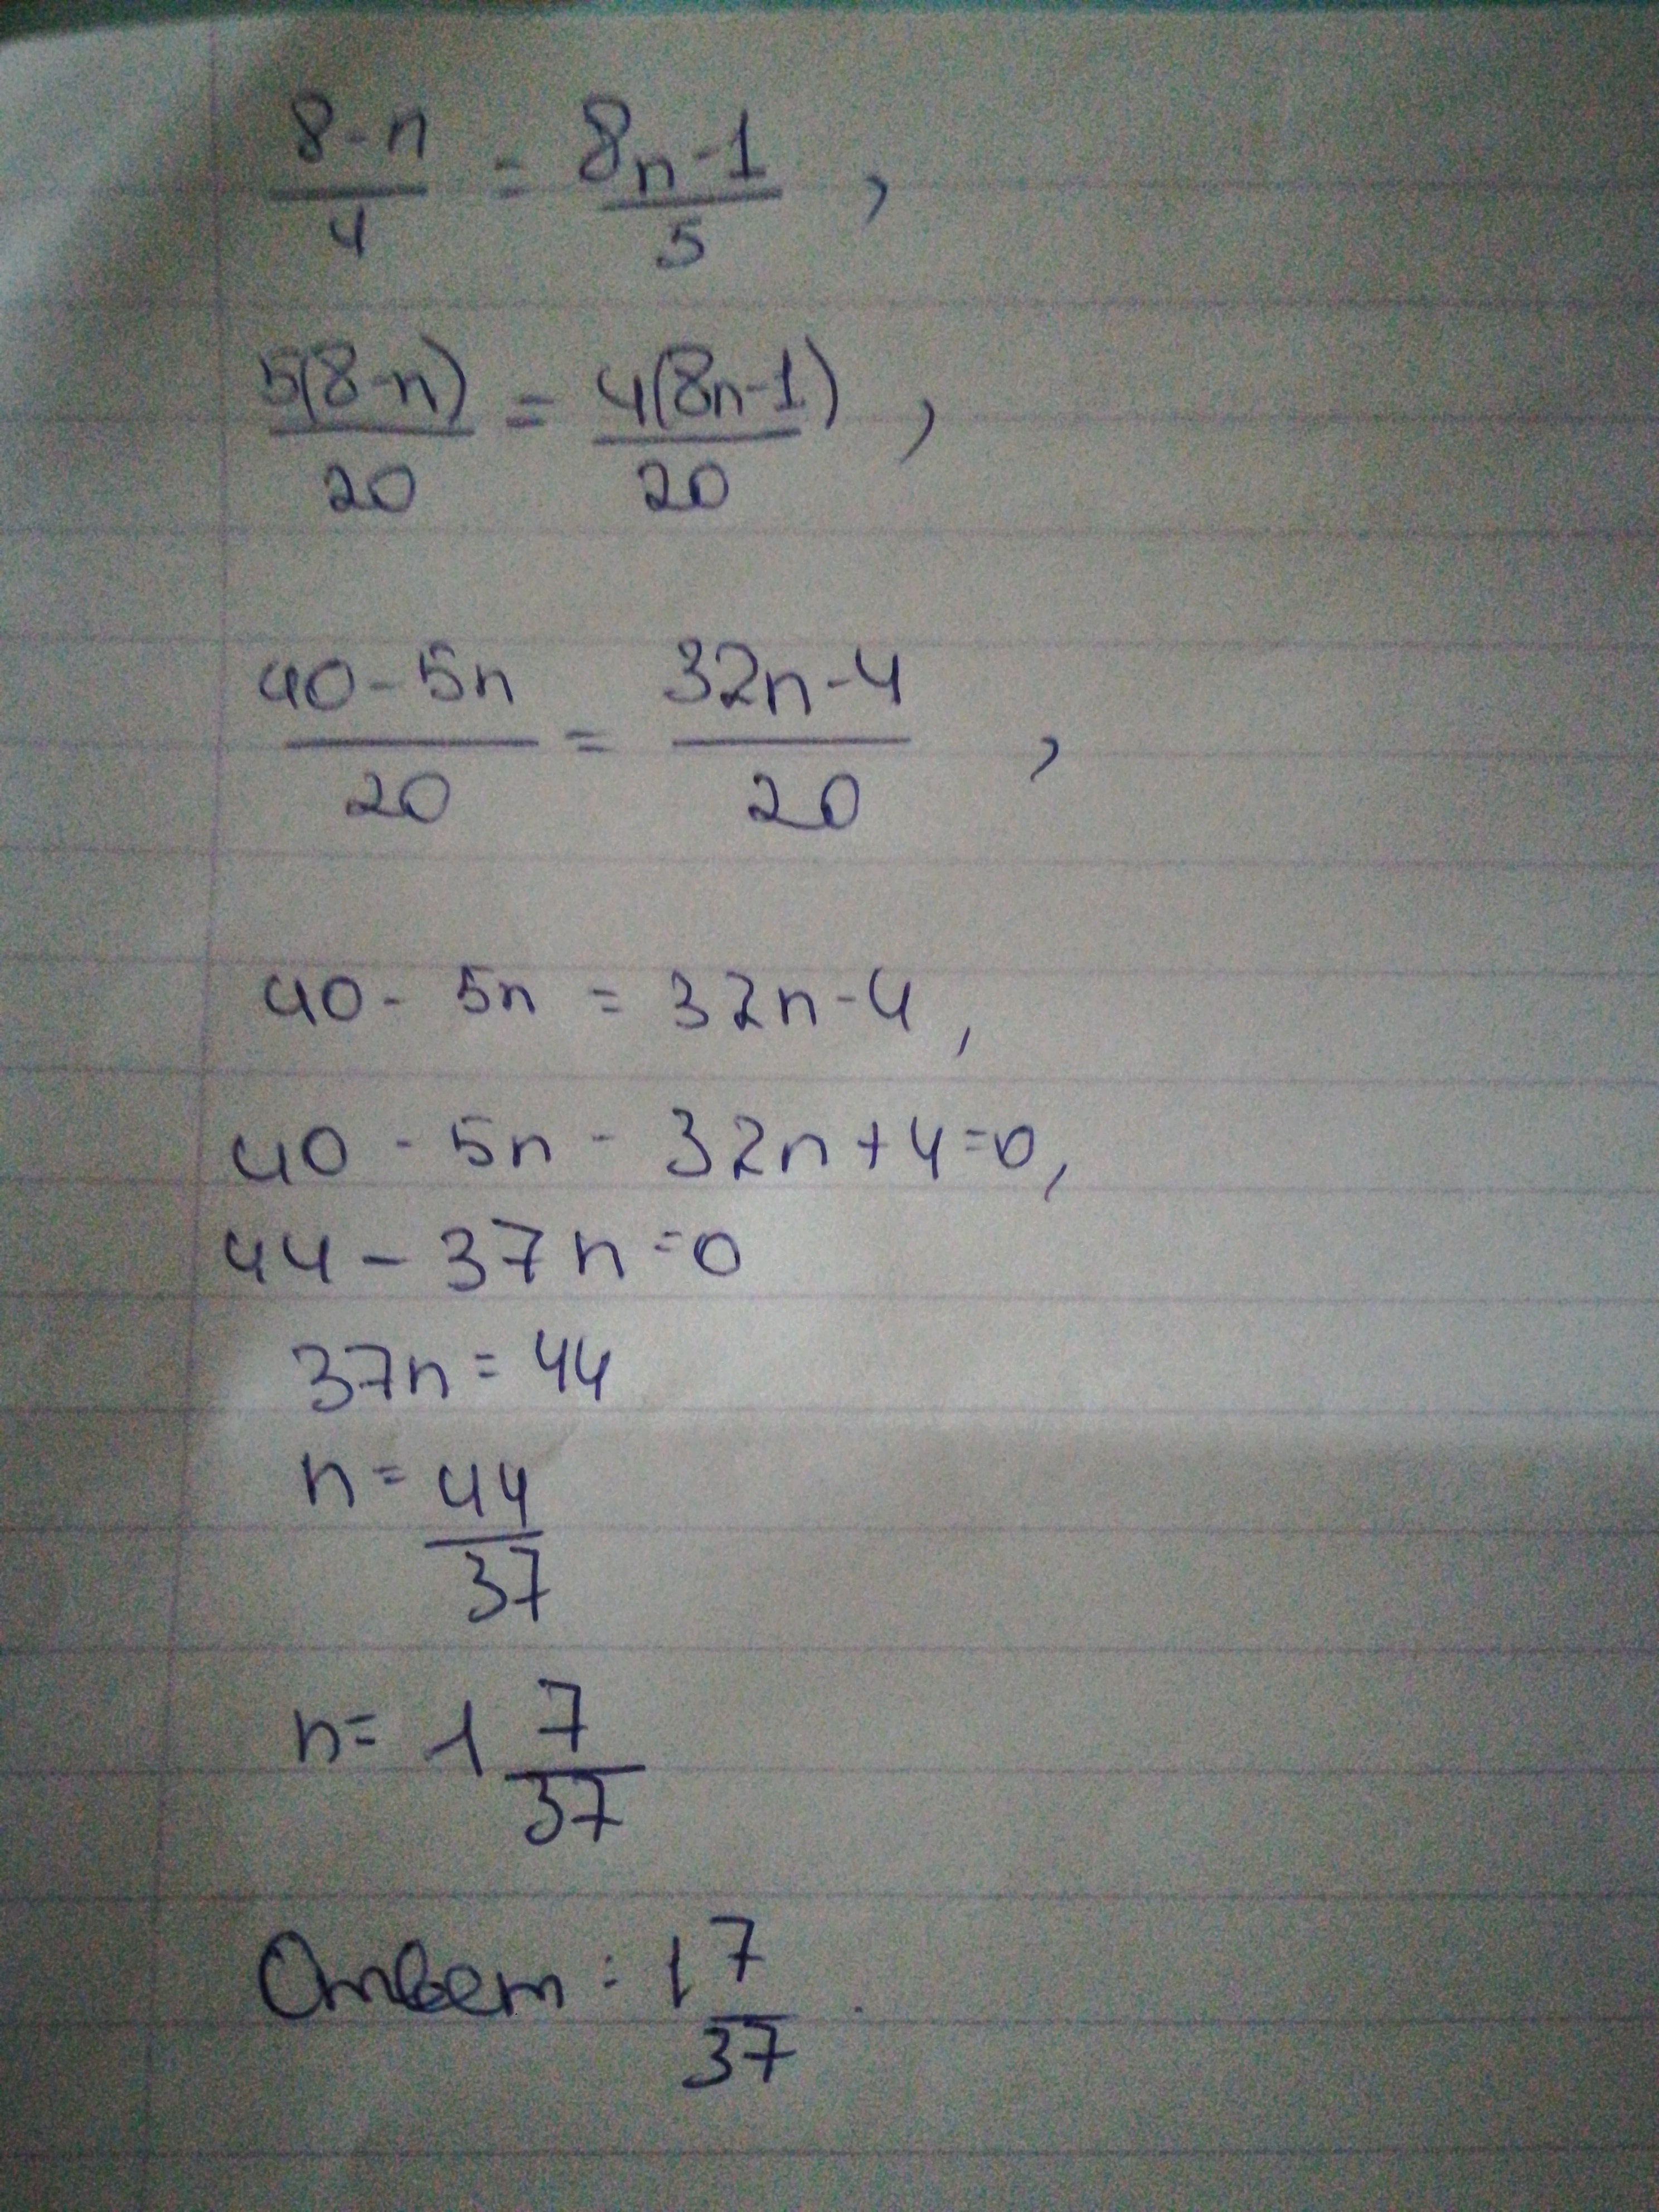 8-n/4 = 8n-1/5 ,
5(8-n)/20 = 4(8n-1)/20 ,
40-5n/20 = 32n-4/20 ,
40 - 5n = 32n-4 ,
40 - 5n - 32n+4=0,
44 - 37n =0
37n = 44
n = 44/37
n = 1 7/37
Ответ : 1 7/37 .